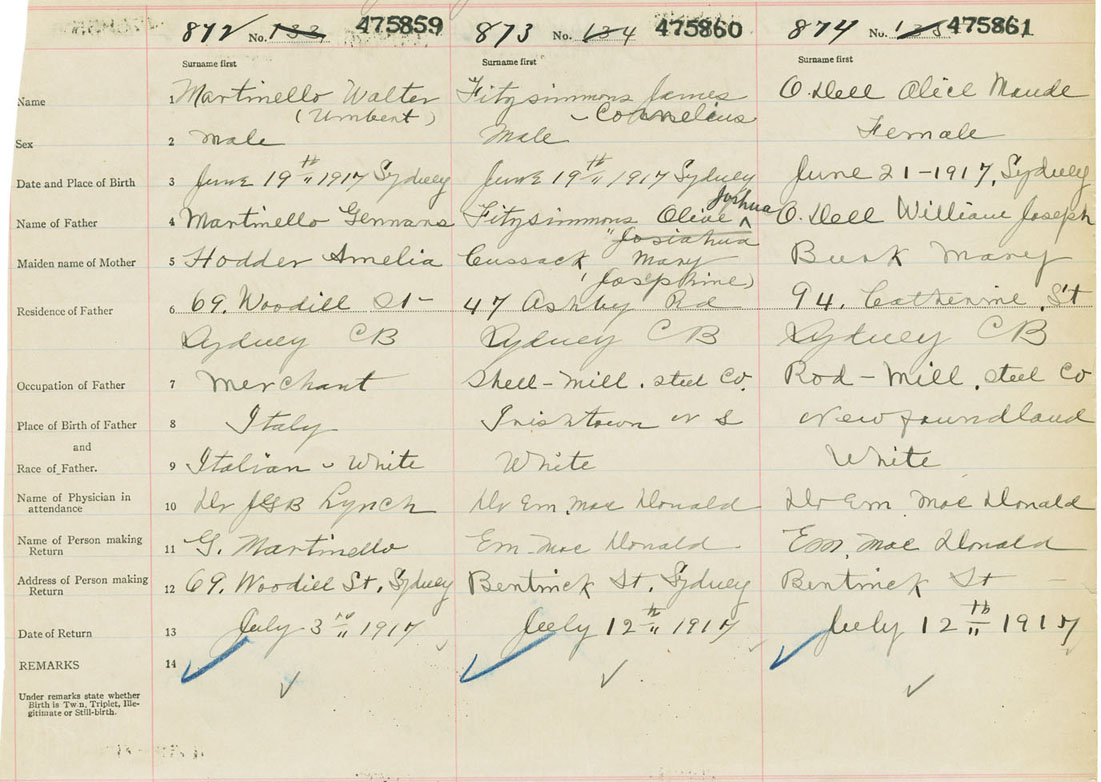 872 No. 133 475859 873 No. 134 475860 874 No. 135 475861
Surname first Surname first Surname first
Name 1 Martinello Walter Fitzsimmons James O.Dell Alice Maude
(Umbert) Cornelius
Sex 2 Male Male Female
Date and Place of Birth 3 June 19th 1917 Sydney June 19th 1917 Sydney June 21-1917, Sydney
Joshua
Name of Father 4 Martinello Gennaro Fitzsimmons Olive O.Dell William Joseph
Josiahua
Maiden name of Mother 5 Hodder Amelia Cussack, Mary Burk Mary
(Josephine)
Residence of Father 6 69. Woodill St- 47 Ashby Rd 94. Catherine St
Sydney CB Sydney CB Sydney CB
Occupation of Father 7 Merchant Shell-Mill. Steel Co. Rod-Mill, Steel Co
Place of Birth of Father 8 Italy Irishtown N S Newfoundland
and
Race of Father. 9 Italian - White White White
Name of Physician in
attendance 10 Dr JGB Lynch Dr Em. Mac Donald Dr Em. Mac Donald
Name of Person making
Return 11 G. Martinello Em. Mac Donald Em. Mac Donald
Address of Person making
Return 12 69. Woodill St. Sydney Bentinck St. Sydney Bentinck St
Date of Return 13 July 3rd 1917 July 12th 1917 July 12th 1917
REMARKS 14
Under remarks state whether
Birth is Twin, Triplet, Ille-
gitimate or Still-birth.